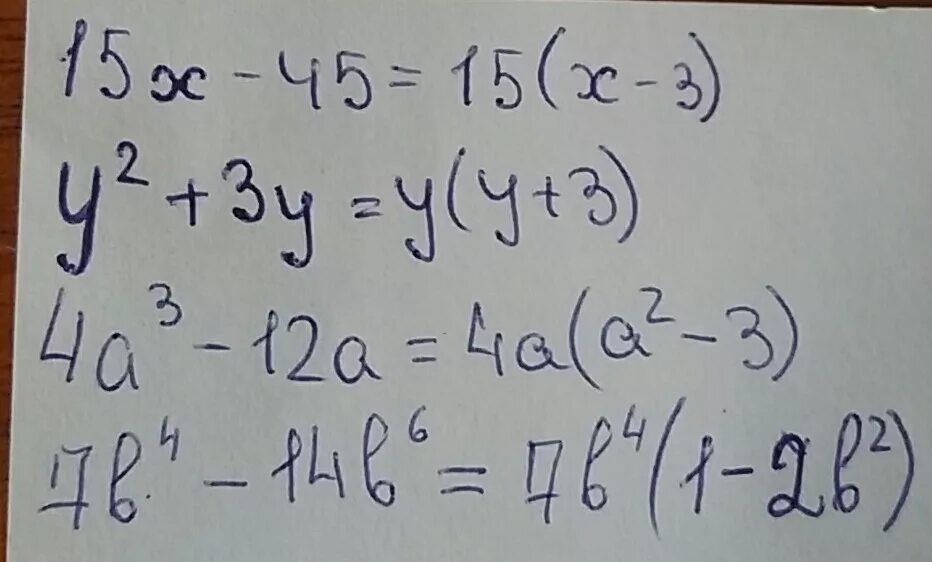 15x - 45 = 15(x - 3)
y² + 3y = y(y + 3)
4a³ - 12a = 4a(a² - 3)
7b⁴ - 14b⁶ = 7b⁴(1 - 2b²)